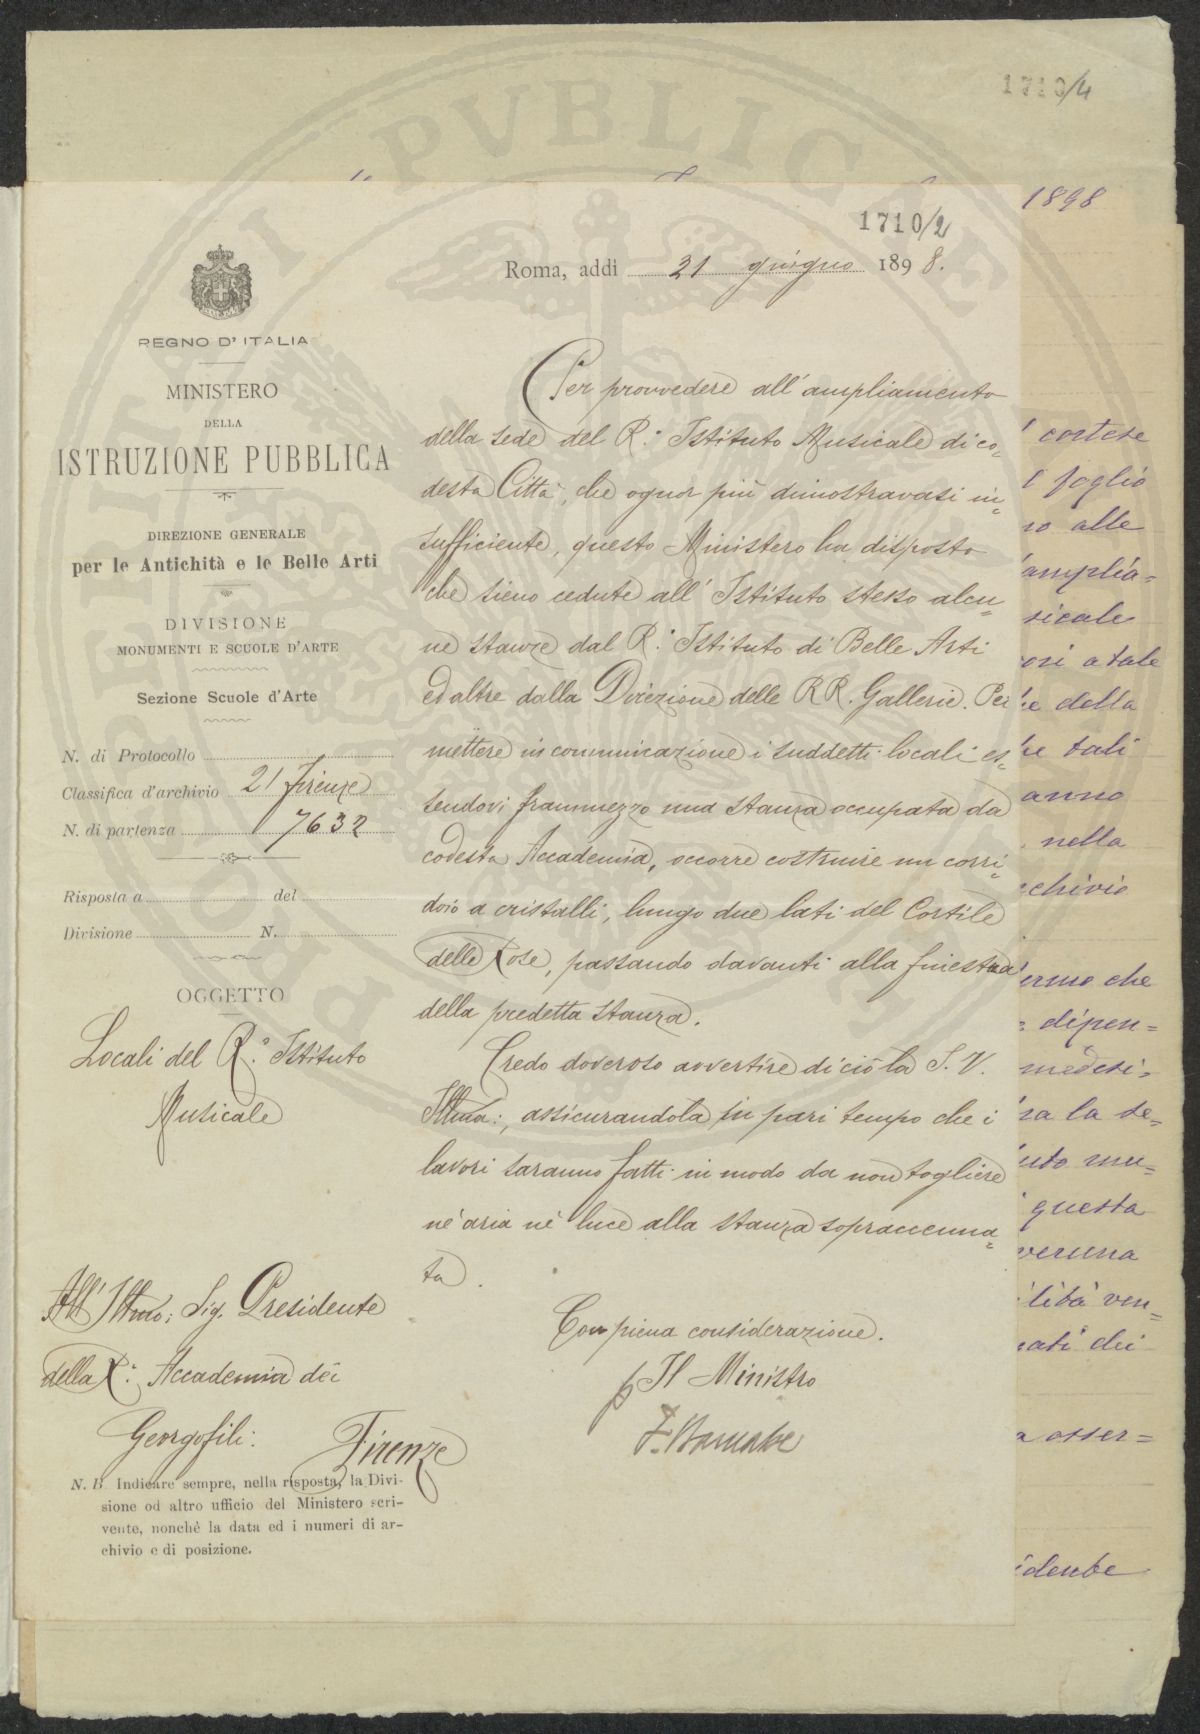 1710/4
1898
1710/2
Roma, addì 21 giugno 1898.
REGNO D'ITALIA
MINISTERO
DELLA
ISTRUZIONE PUBBLICA
DIREZIONE GENERALE
per le Antichità e le Belle Arti
DIVISIONE
MONUMENTI E SCUOLE D'ARTE
Sezione Scuole d'Arte
N. di Protocollo
Classifica d'archivio 21 Firenze
N. di partenza 7632
Risposta a del
Divisione N.
OGGETTO
Locali del R.º Istituto
Musicale
Per provvedere all'ampliamento
della sede del R.º Istituto Musicale di co=
desta Città, che ognor più dimostravasi in=
sufficiente, questo Ministero ha disposto
che sieno cedute all'Istituto stesso alcu=
ne stanze dal R.º Istituto di Belle Arti
ed altre dalla Direzione delle RR. Gallerie. Per
mettere in comunicazione i suddetti locali es=
sendovi frammezzo una stanza occupata da
codesta Accademia, occorre costruire un corri=
doio a cristalli, lungo due lati del Cortile
delle Rose, passando davanti alla finestra
della predetta stanza.
Credo doveroso avvertire di ciò la S. V.
Illma:, assicurandola in pari tempo che i
lavori saranno fatti in modo da non togliere
nè aria nè luce alla stanza sopraccenna=
ta.
Con piena considerazione.
p Il Ministro
F. Barnabei
All'Illmo: Sig. Presidente
della R.ª Accademia dei
Georgofili:
Firenze
N. B. Indicare sempre, nella risposta, la Divi-
sione od altro ufficio del Ministero scri-
vente, nonchè la data ed i numeri di ar-
chivio e di posizione.
cortese
foglio
alle
amplia=
sicale
a tale
della
tali
anno
nella
chivio
ermo che
dipen=
medesi=
la se=
uto mu=
questa
veruna
ilità ven=
dei
a osser=
idente
PVBLICAE